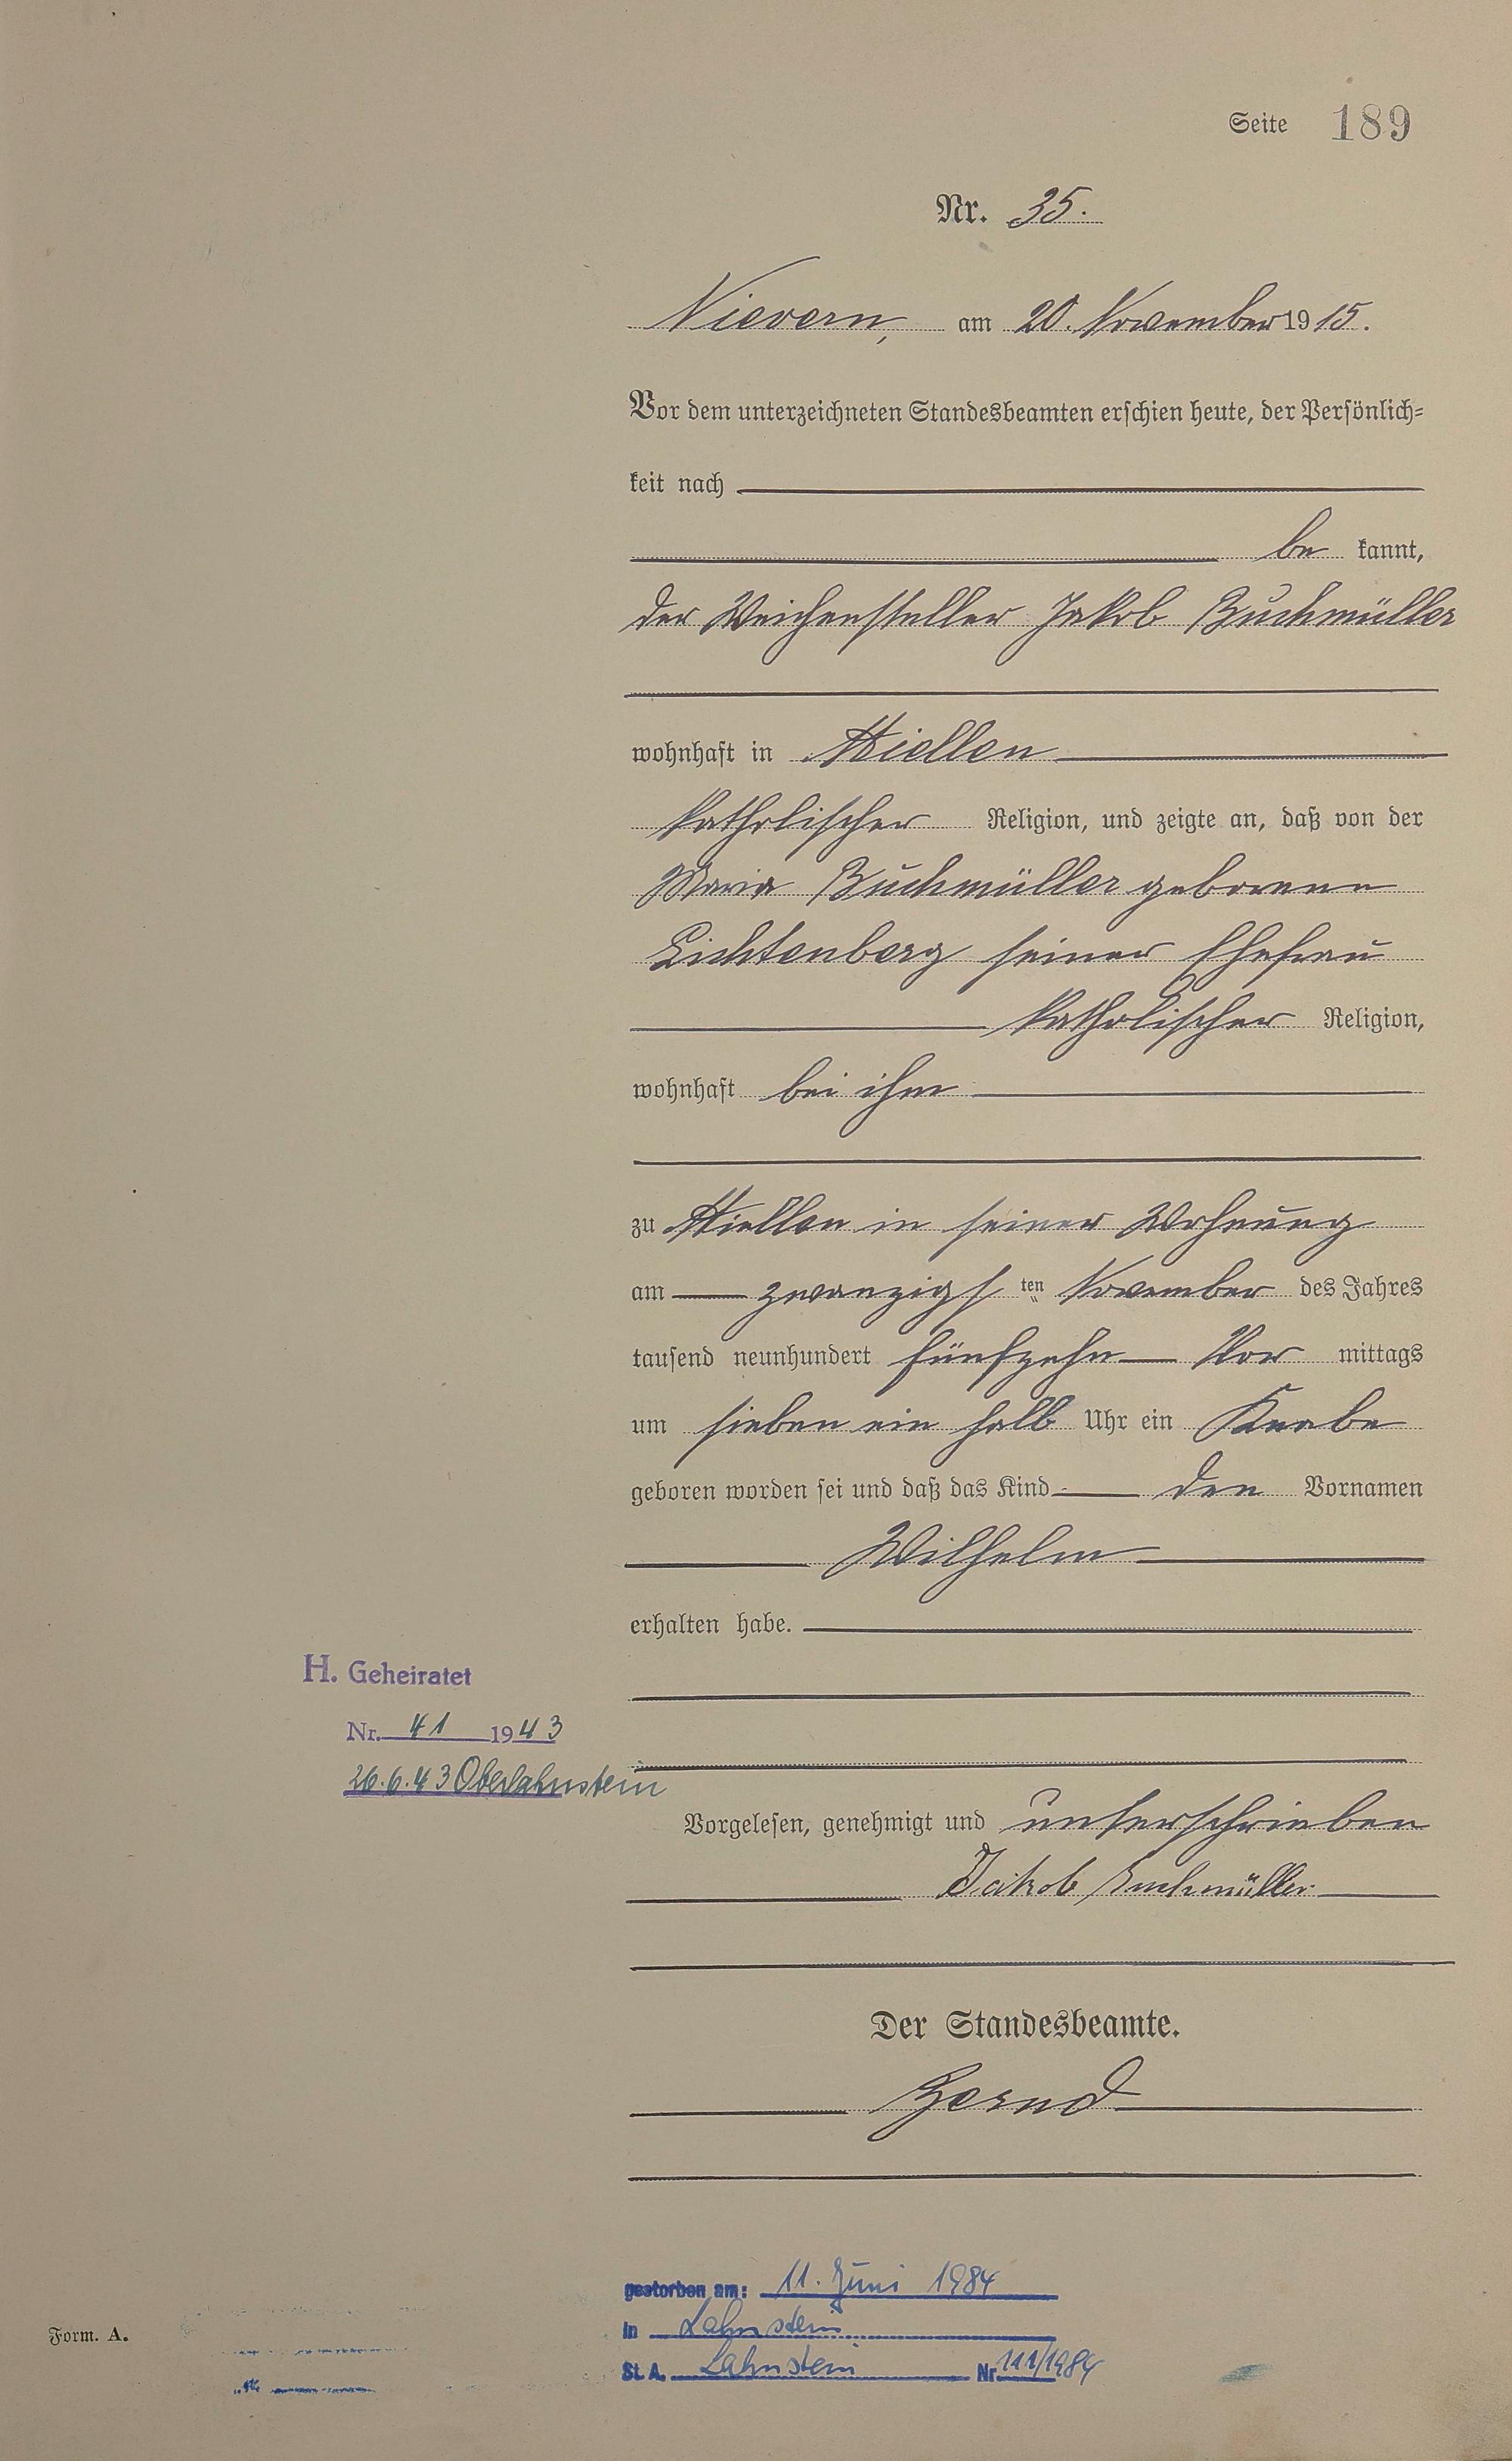 Seite 189
Nr. 35.
Nievern, am 20. November 1915.
Vor dem unterzeichneten Standesbeamten erschien heute, der Persönlich=
keit nach
be kannt,
der Weichensteller Jakob Buchmüller
wohnhaft in Miellen
katholischer Religion, und zeigte an, daß von der
Maria Buchmüller geborene
Lichtenberg seiner Ehefrau
katholischer Religion,
wohnhaft bei ihm
zu Miellen in seiner Wohnung
am zwanzigsten November des Jahres
tausend neunhundert fünfzehn Vor mittags
um sieben ein halb Uhr ein Knabe
geboren worden sei und daß das Kind den Vornamen
Wilhelm
erhalten habe.
H. Geheiratet
Nr. 41 1943
26.6.43 Oberlahnstein
Vorgelesen, genehmigt und unterschrieben
Jakob Buchmüller
Der Standesbeamte.
gestorben am: 11. Juni 1984
in Lahnstein
St. A. Lahnstein Nr 111/1984
Form. A.